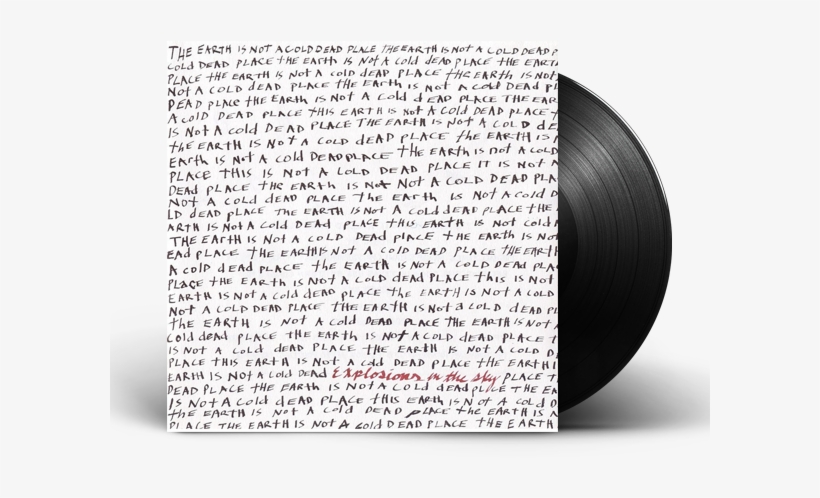 THE EARTH IS NOT A COLD DEAD PLACE THE EARTH IS NOT A COLD DEAD P
COLD DEAD PLACE THE EARTH IS NOT A COLD dEAD PLACE THE EARTH
PLACE THE EARTH IS NOT A COLD dEAD PLACE THE EARTH IS NOT
NOT A COLD DEAD PLACE THE EARTH IS NOT A COLD DEAD PLAC
DEAD PLACE THE EARTH IS NOT A COLD dEAD PLACE THE EAR
A COLD DEAD PLACE THIS EARTH IS NOT A COLD DEAD PLACE T
IS NOT A COLD DEAD PLACE THE EARTH IS NOT A COLD DE
THE EARTH IS NOT A COLD DEAD PLACE THE EARTH IS N
EARTH IS NOT A COLD DEAD PLACE THE EARTH IS NOT A COLD
PLACE THIS IS NOT A COLD DEAD PLACE IT IS NOT A
DEAD PLACE THE EARTH IS NOT NOT A COLD DEAD PLA
NOT A COLD dEAD PLACE THE EARTH IS NOT A COLD D
LD DEAD PLACE THE EARTH IS NOT A COLD dEAD PLACE THE
ARTH IS NOT A COLD DEAD PLACE THIS EARTH IS NOT COLD
THE EARTH IS NOT A COLD DEAD PLACE THE EARTH IS NO
EAD PLACE THE EARTH IS NOT A COLD DEAD PLACE THE EARTH
A COLD dEAD PLACE THE EARTH IS NOT A COLD DEAD PLA
PLACE THE EARTH IS NOT A COLD dEAD PLACE THIS IS NOT
EARTH IS NOT A COLD dEAD PLACE THE EARTH IS NOT A COLD
NOT A COLD DEAD PLACE THE EARTH IS NOT A COLD dEAD PL
THE EARTH IS NOT A COLD DEAD PLACE THE EARTH IS NOT A
COLD dEAD PLACE THE EARTH IS NOT A COLD DEAD PLACE T
IS NOT A COLD DEAD PLACE THE EARTH IS NOT A COLD D
PLACE THIS EARTH IS NOT A COLD DEAD PLACE THE EARTH I
EARTH IS NOT A COLD DEAD Explosions in the sky PLACE T
DEAD PLACE THE EARTH IS NOT A COLD dEAD PLACE THE EA
IS NOT A COLD DEAD PLACE THIS EARTH IS NOT A COLD D
THE EARTH IS NOT A COLD DEAD PLACE THE EARTH IS N
PLACE THE EARTH IS NOT A COLD DEAD PLACE THE EARTH